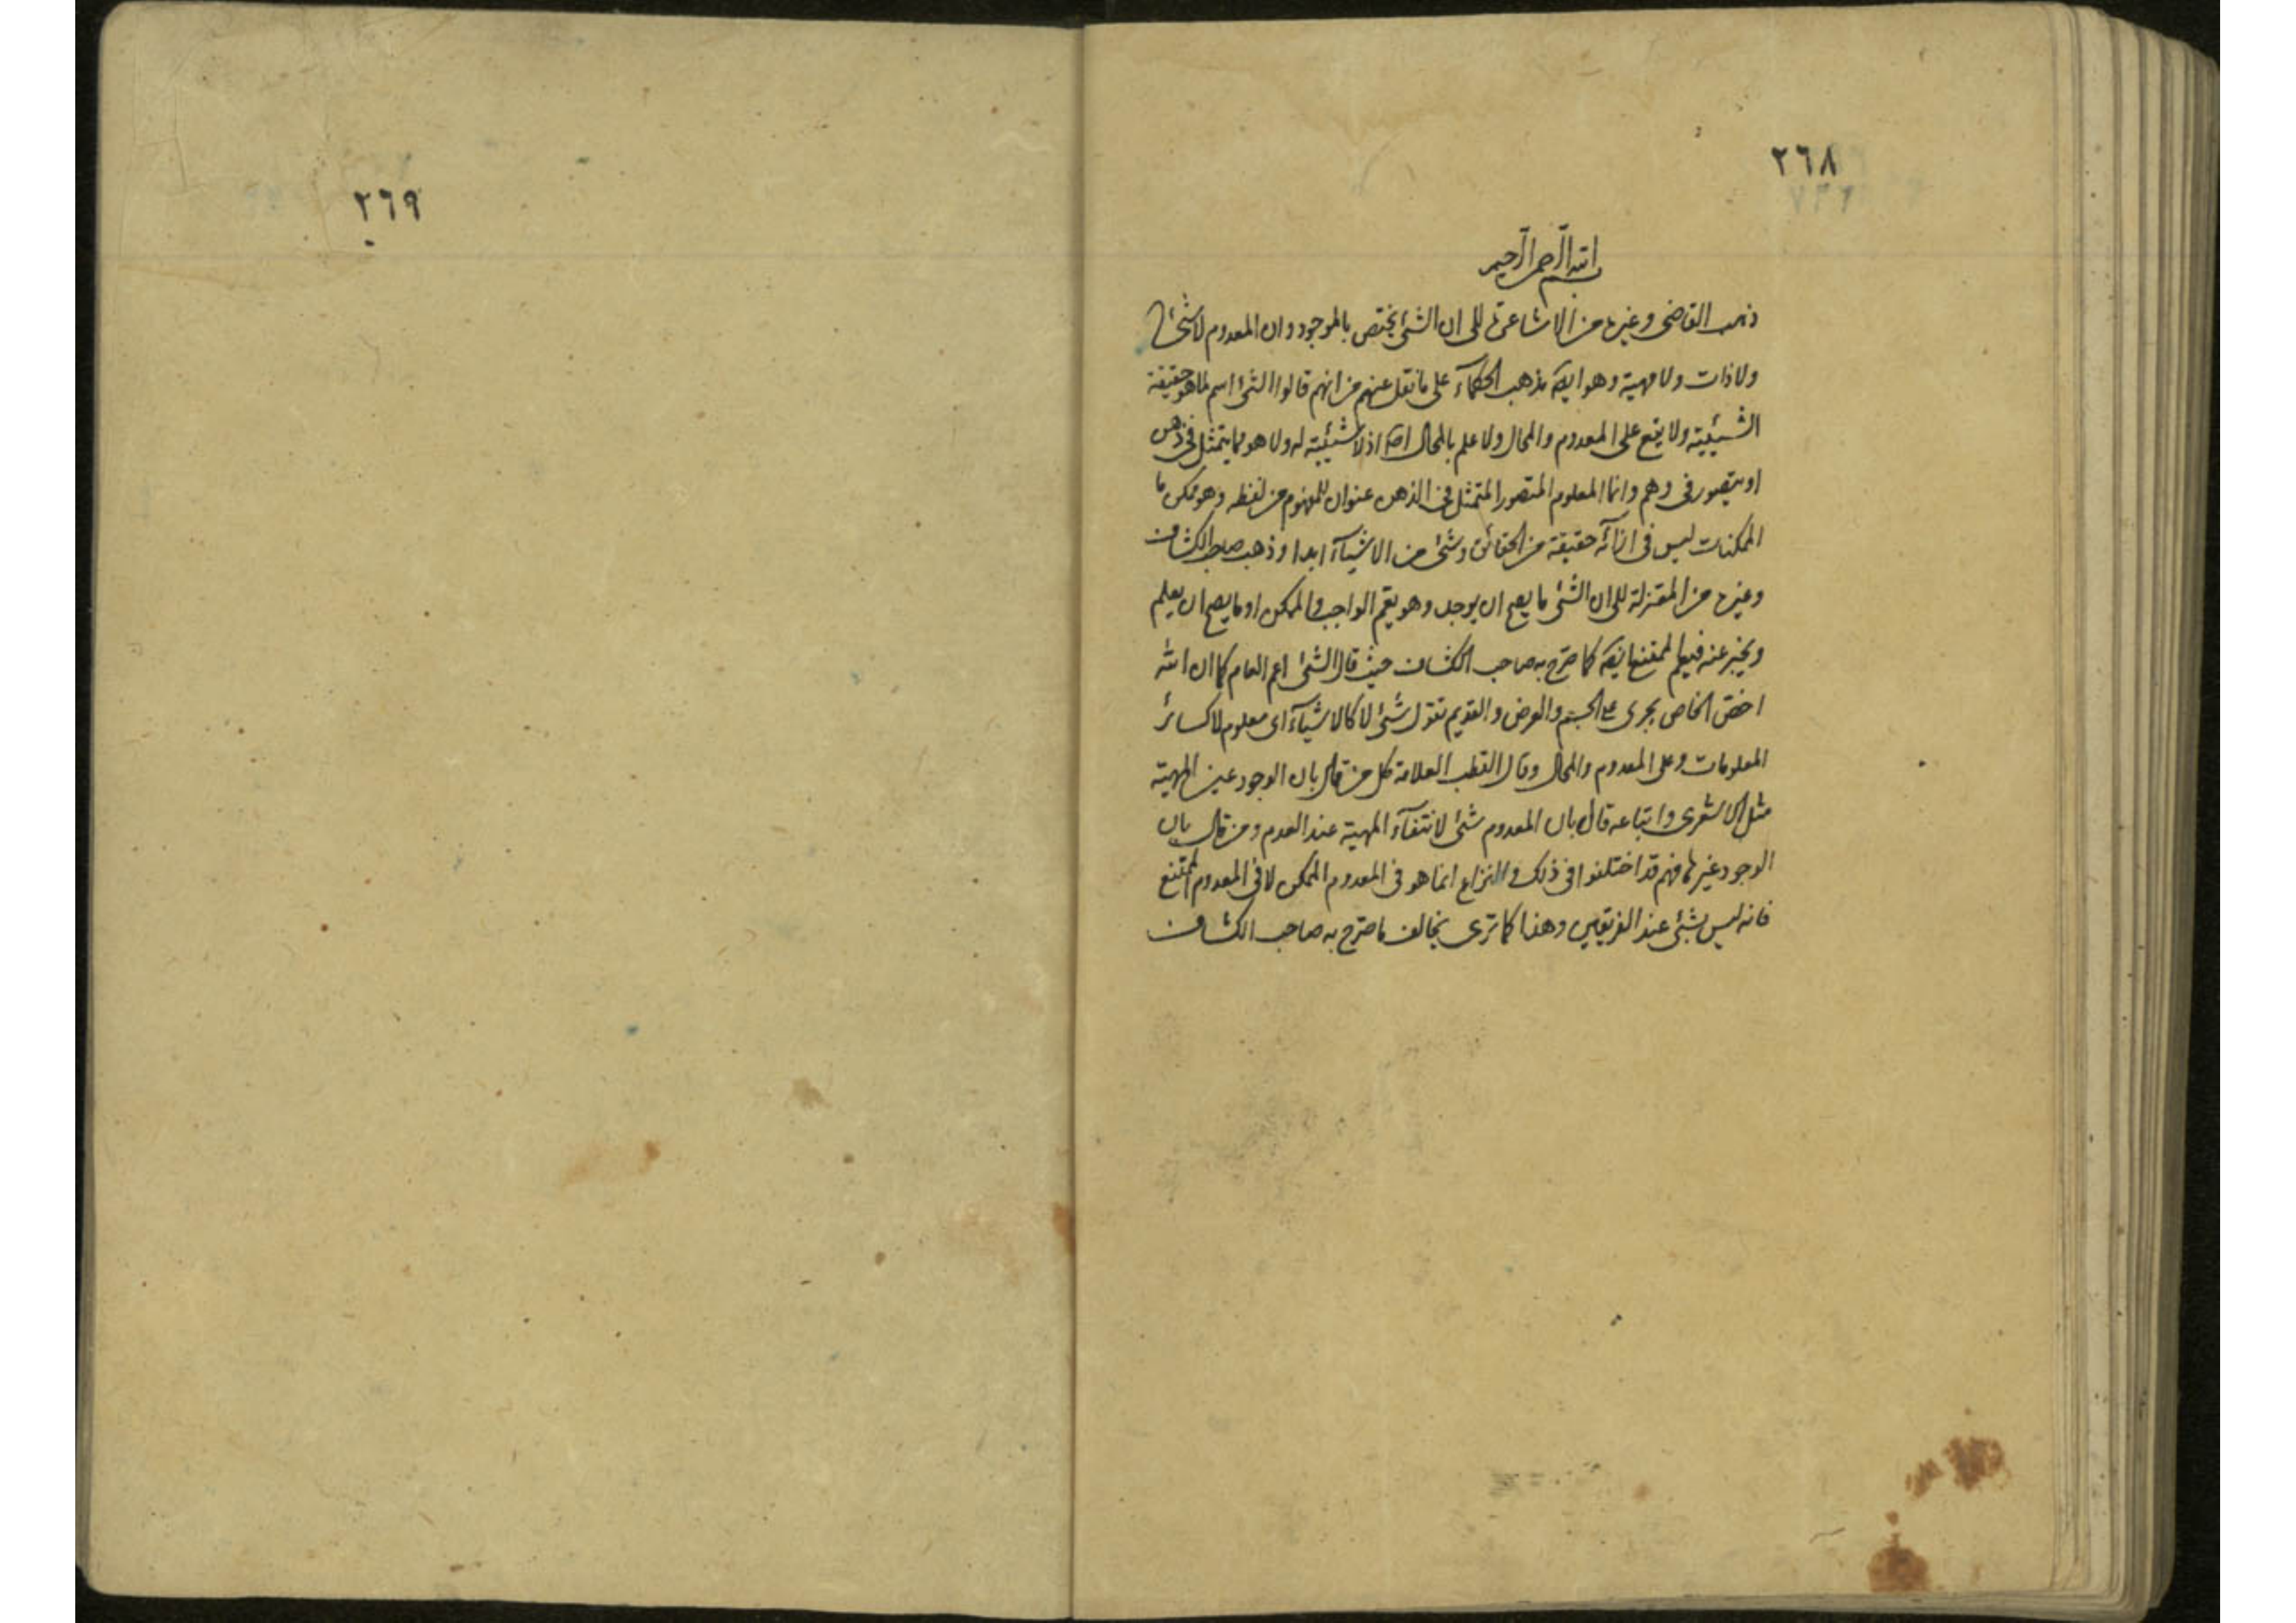 ٢٦٨
بسم الله الرحمن الرحيم
ذهب القاضى وغيره من الاشاعرة الى ان الشئ يختص بالموجود وان المعدوم لا شئ
ولا ذات ولا مهية وهو ايضا مذهب الحكمآء على ما نقل عنهم من انهم قالوا الشئ اسم لما هو حقيقة
الشيئية ولا يقع على المعدوم والمحال ولا علم بالمحال اصلا اذ لا شيئية له ولا هو مما يتمثل فى ذهن
او يتصور فى وهم وانما المعلوم المتصور المتمثل فى الذهن عنوان للمفهوم من لفظه وهو ممكن ما
الممكنات ليس فى ازآئه حقيقة من الحقائق وشئ من الاشيآء ابدا وذهب صاحب الكشاف
وغيره من المعتزلة الى ان الشئ ما يصح ان يوجد وهو يعم الواجب والممكن او ما يصح ان يعلم
ويخبر عنه فيعم الممتنع ايضا كما صرح به صاحب الكشاف حيث قال الشئ اعم العام كما ان الله
اخص الخاص يجرى على الجسم والعرض والقديم تقول شئ لا كالاشيآء اى معلوم لا كسائر
المعلومات وعلى المعدوم والمحال وقال القطب العلامة كل من قال بان الوجود عين المهية
مثل الاشعرى واتباعه قال بان المعدوم شئ لانتفآء المهية عند العدم ومن قال بان
الوجود غيرها فهم قد اختلفوا فى ذلك والنزاع انما هو فى المعدوم الممكن لا فى المعدوم الممتنع
فانه ليس بشئ عند الفريقين وهذا كما ترى يخالف ما صرح به صاحب الكشاف
٢٦٩